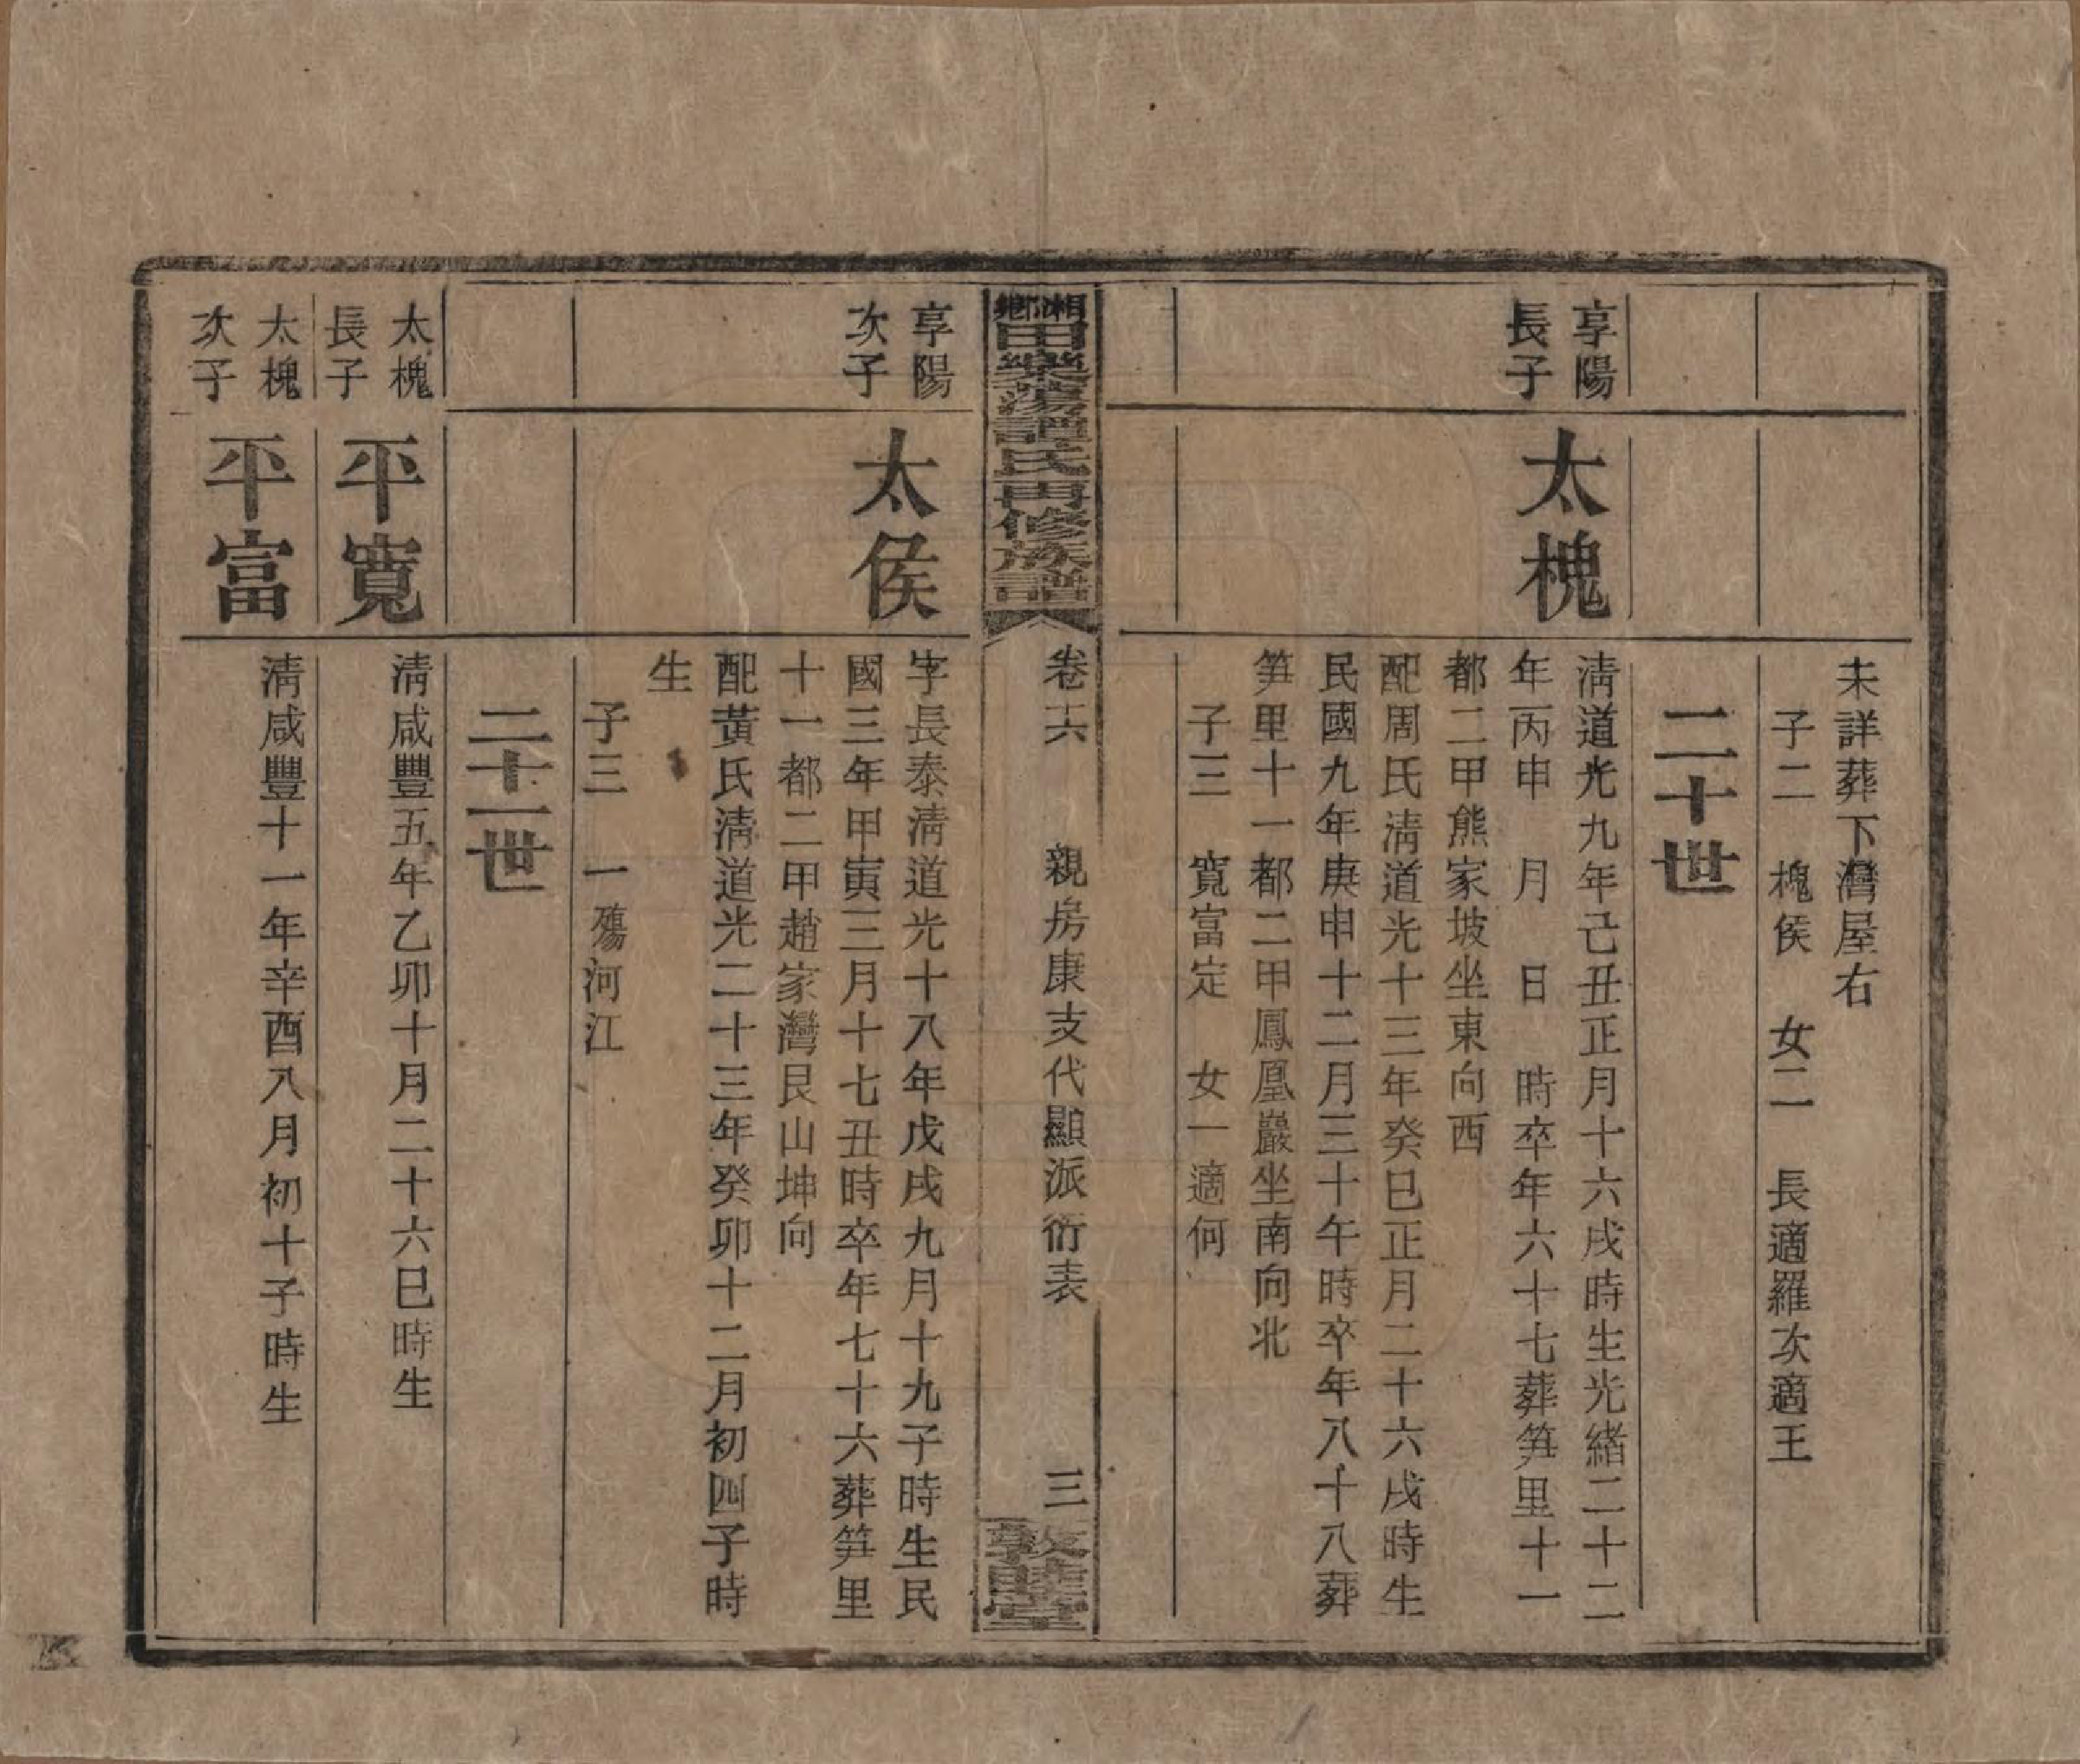 未詳葬下灣屋右
子二　槐侯　女二　長適羅次適王
二十世
享陽
長子
太槐
淸道光九年己丑正月十六戌時生光緖二十二
年丙申　月　日　時卒年六十七葬笋里十一
都二甲熊家坡坐東向西
配周氏淸道光十三年癸巳正月二十六戌時生
民國九年庚申十二月三十午時卒年八十八葬
笋里十一都二甲鳳凰巖坐南向北
子三　寬富定　女一適何
湘鄉
田樂蕩譚氏再修族譜
卷六　親房康支代顯派衍表　三
敦睦堂
享陽
次子
太侯
字長泰淸道光十八年戊戌九月十九子時生民
國三年甲寅三月十七丑時卒年七十六葬笋里
十一都二甲趙家灣艮山坤向
配黃氏淸道光二十三年癸卯十二月初四子時
生
子三　一殤河江
二十一世
太槐
長子
平寬
淸咸豐五年乙卯十月二十六巳時生
太槐
次子
平富
淸咸豐十一年辛酉八月初十子時生